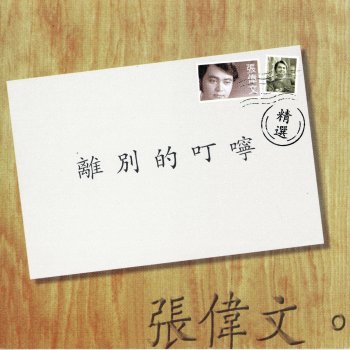 張偉文
精選
離別的叮嚀
張偉文。